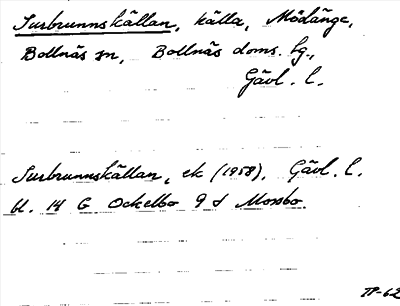 Surbrunnskällan, källa, Mödänge,
Bollnäs sn, Bollnäs doms. hg.,
Gävl. l.
Surbrunnskällan, ek (1958). Gävl. l.
bl. 14 G Ockelbo 9 d Mossbo.
TP-62